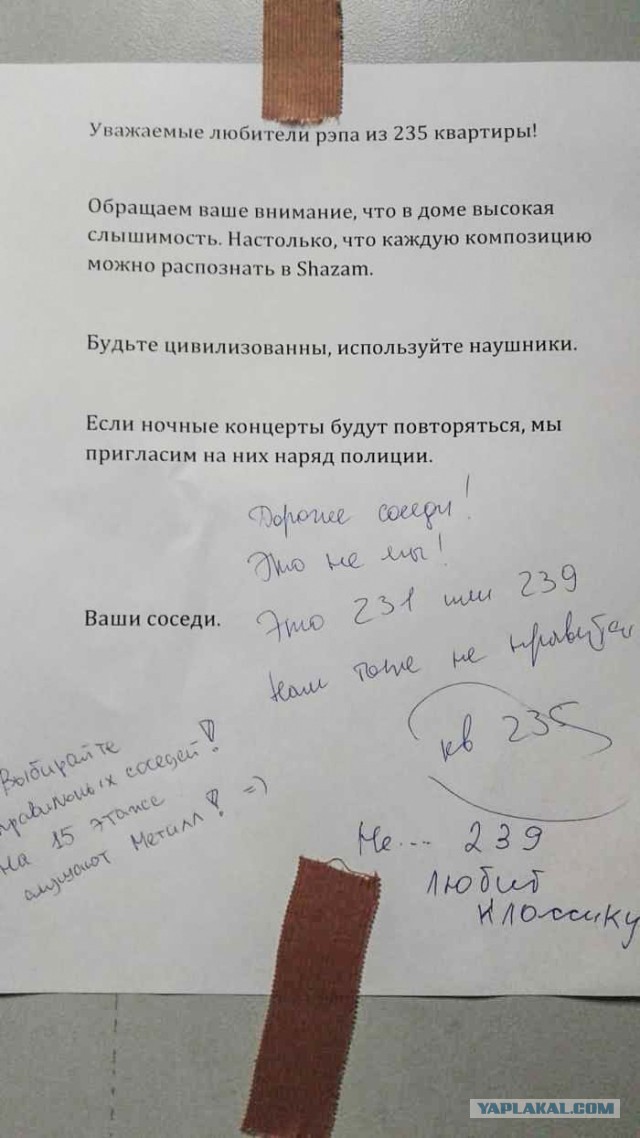 Уважаемые любители рэпа из 235 квартиры!
Обращаем ваше внимание, что в доме высокая
слышимость. Настолько, что каждую композицию
можно распознать в Shazam.
Будьте цивилизованны, используйте наушники.
Если ночные концерты будут повторяться, мы
пригласим на них наряд полиции.
Дорогие соседи!
Это не мы!
Ваши соседи.
Это 231 или 239
Нам тоже не нравится
кв 235
Выбирайте
правильных соседей!
На 15 этаже
слушают Металл! =)
Не... 239
любит
классику
YAPLAKAL.COM